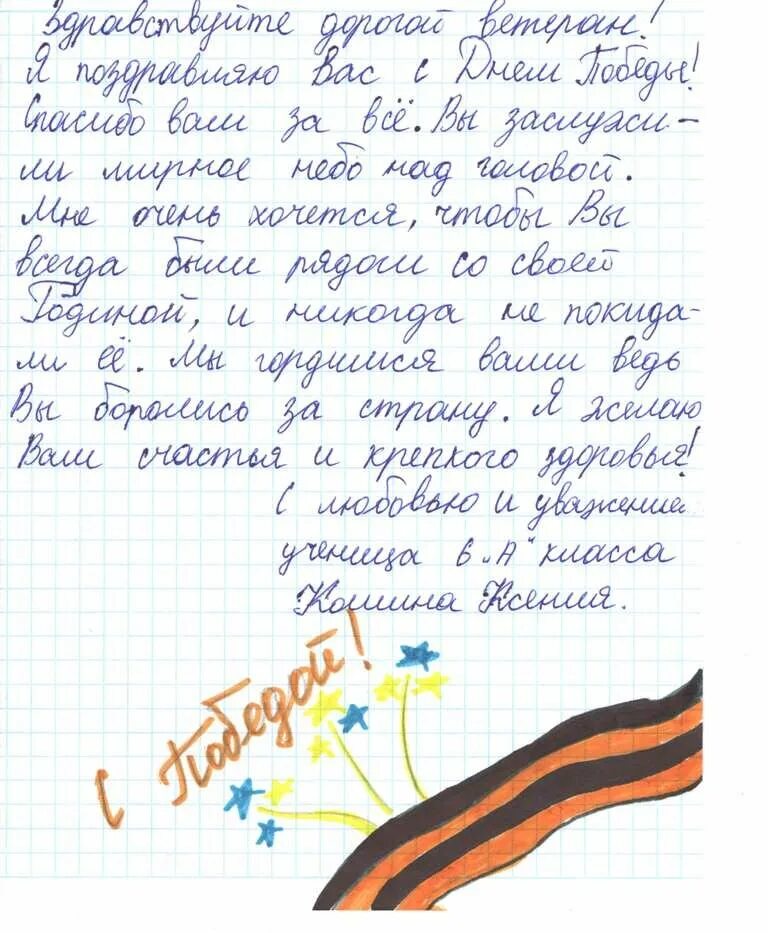 Здравствуйте дорогой ветеран!
Я поздравляю Вас с Днем Победы!
Спасибо вам за всё. Вы заслужи-
ли мирное небо над головой.
Мне очень хочется, чтобы Вы
всегда были рядом со своей
Родиной, и никогда не покида-
ли её. Мы гордимся вами ведь
Вы боролись за страну. Я желаю
Вам счастья и крепкого здоровья!
С любовью и уважение
ученица 6 „А" класса
Кошина Ксения.
С Победой!